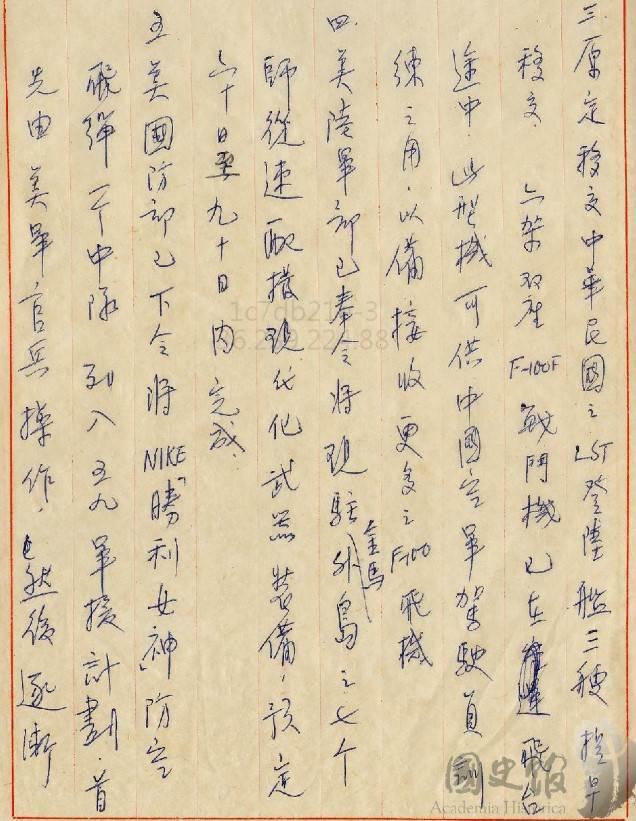 三. 原定移交中華民國之 LST 登陸艦三艘提早
移交. 六架双座 F-100F 戰鬥機已在運飛台
途中. 此型機可供中國空軍駕駛員訓
練之用. 以備接收更多之 F-100 飛機
四. 美陸軍部已奉令將現駐金馬外島之七个
師從速配撥現代化武器裝備, 預定
六十日至九十日內完成.
五. 美國防部已下令將 NIKE「勝利女神」防空
飛彈一个中隊列入五九軍援計劃. 首
先由美軍官兵操作. 然後逐漸
國史館
Academia Historica